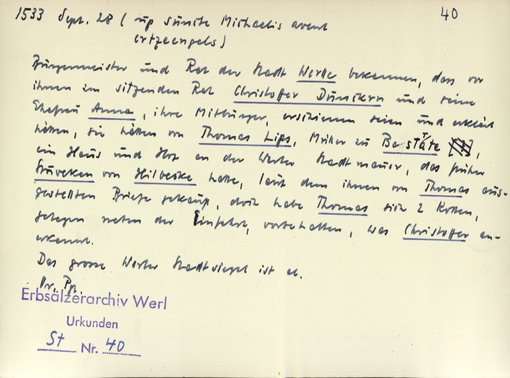 1533 Sept. 28 (up sünte Michaelis avent
ertzeengels)
40
Bürgermeister und Rat der Stadt Werle bekennen, dass vor
ihnen im sitzenden Rat Christoffer Dünikern und seine
Ehefrau Anna, ihre Mitbürger, erschienen seien und erklärt
hätten, sie hätten von Thomas Lips, Mriker zu Bestäte,
ein Haus und Hof an der Werler Stadtmauer, das früher
von Hilbecke hatte, laut dem ihnen von Thomas aus-
gestellten Briefe gekauft, doch habe Thomas sich 2 Kotten,
gelegen neben der Einfahrt, vorbehalten, was Christoffer an-
erkennt.
Das grosse Werler Stadtsiegel ist ab.
Or. Pp.
Erbsälzerarchiv Werl
Urkunden
St Nr. 40